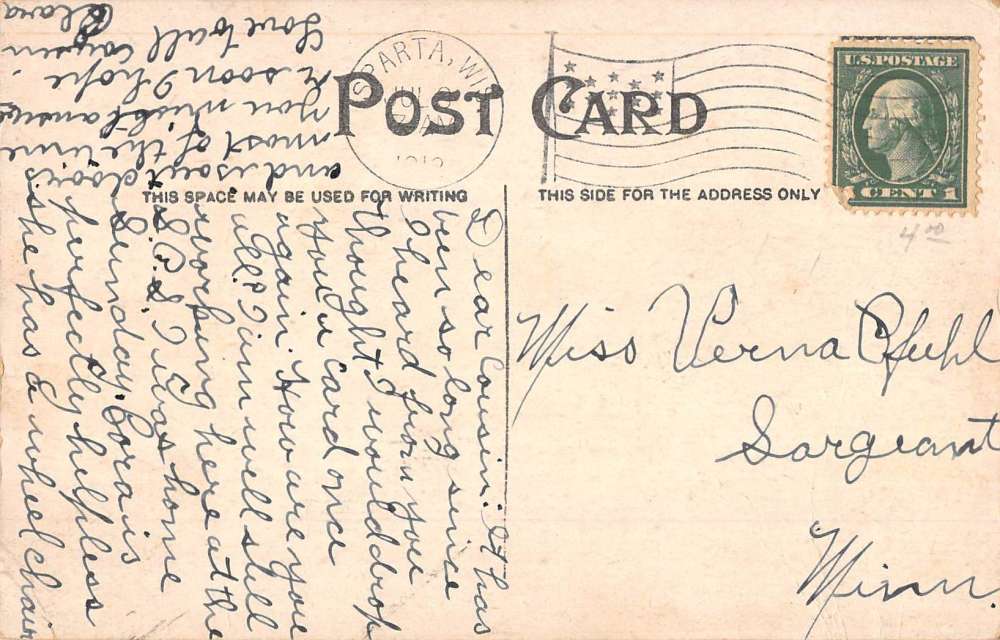 POST CARD
SPARTA, WIS.
1912
U.S. POSTAGE
1 CENT 1
THIS SPACE MAY BE USED FOR WRITING
THIS SIDE FOR THE ADDRESS ONLY
4 00
Dear Cousin: It has
been so long since
I heard from you
thought I would drop
you a card once
again. How are you
all? I am well still
working here at the
S.P.S. I was home
Sunday. Cora is
perfectly helpless
she has a wheel chair
and is out doors
most of the time
you might answer
soon I hope.
Love to all Cousin
Clara
Miss Verna Pfuhl
Sargeant
Minn.